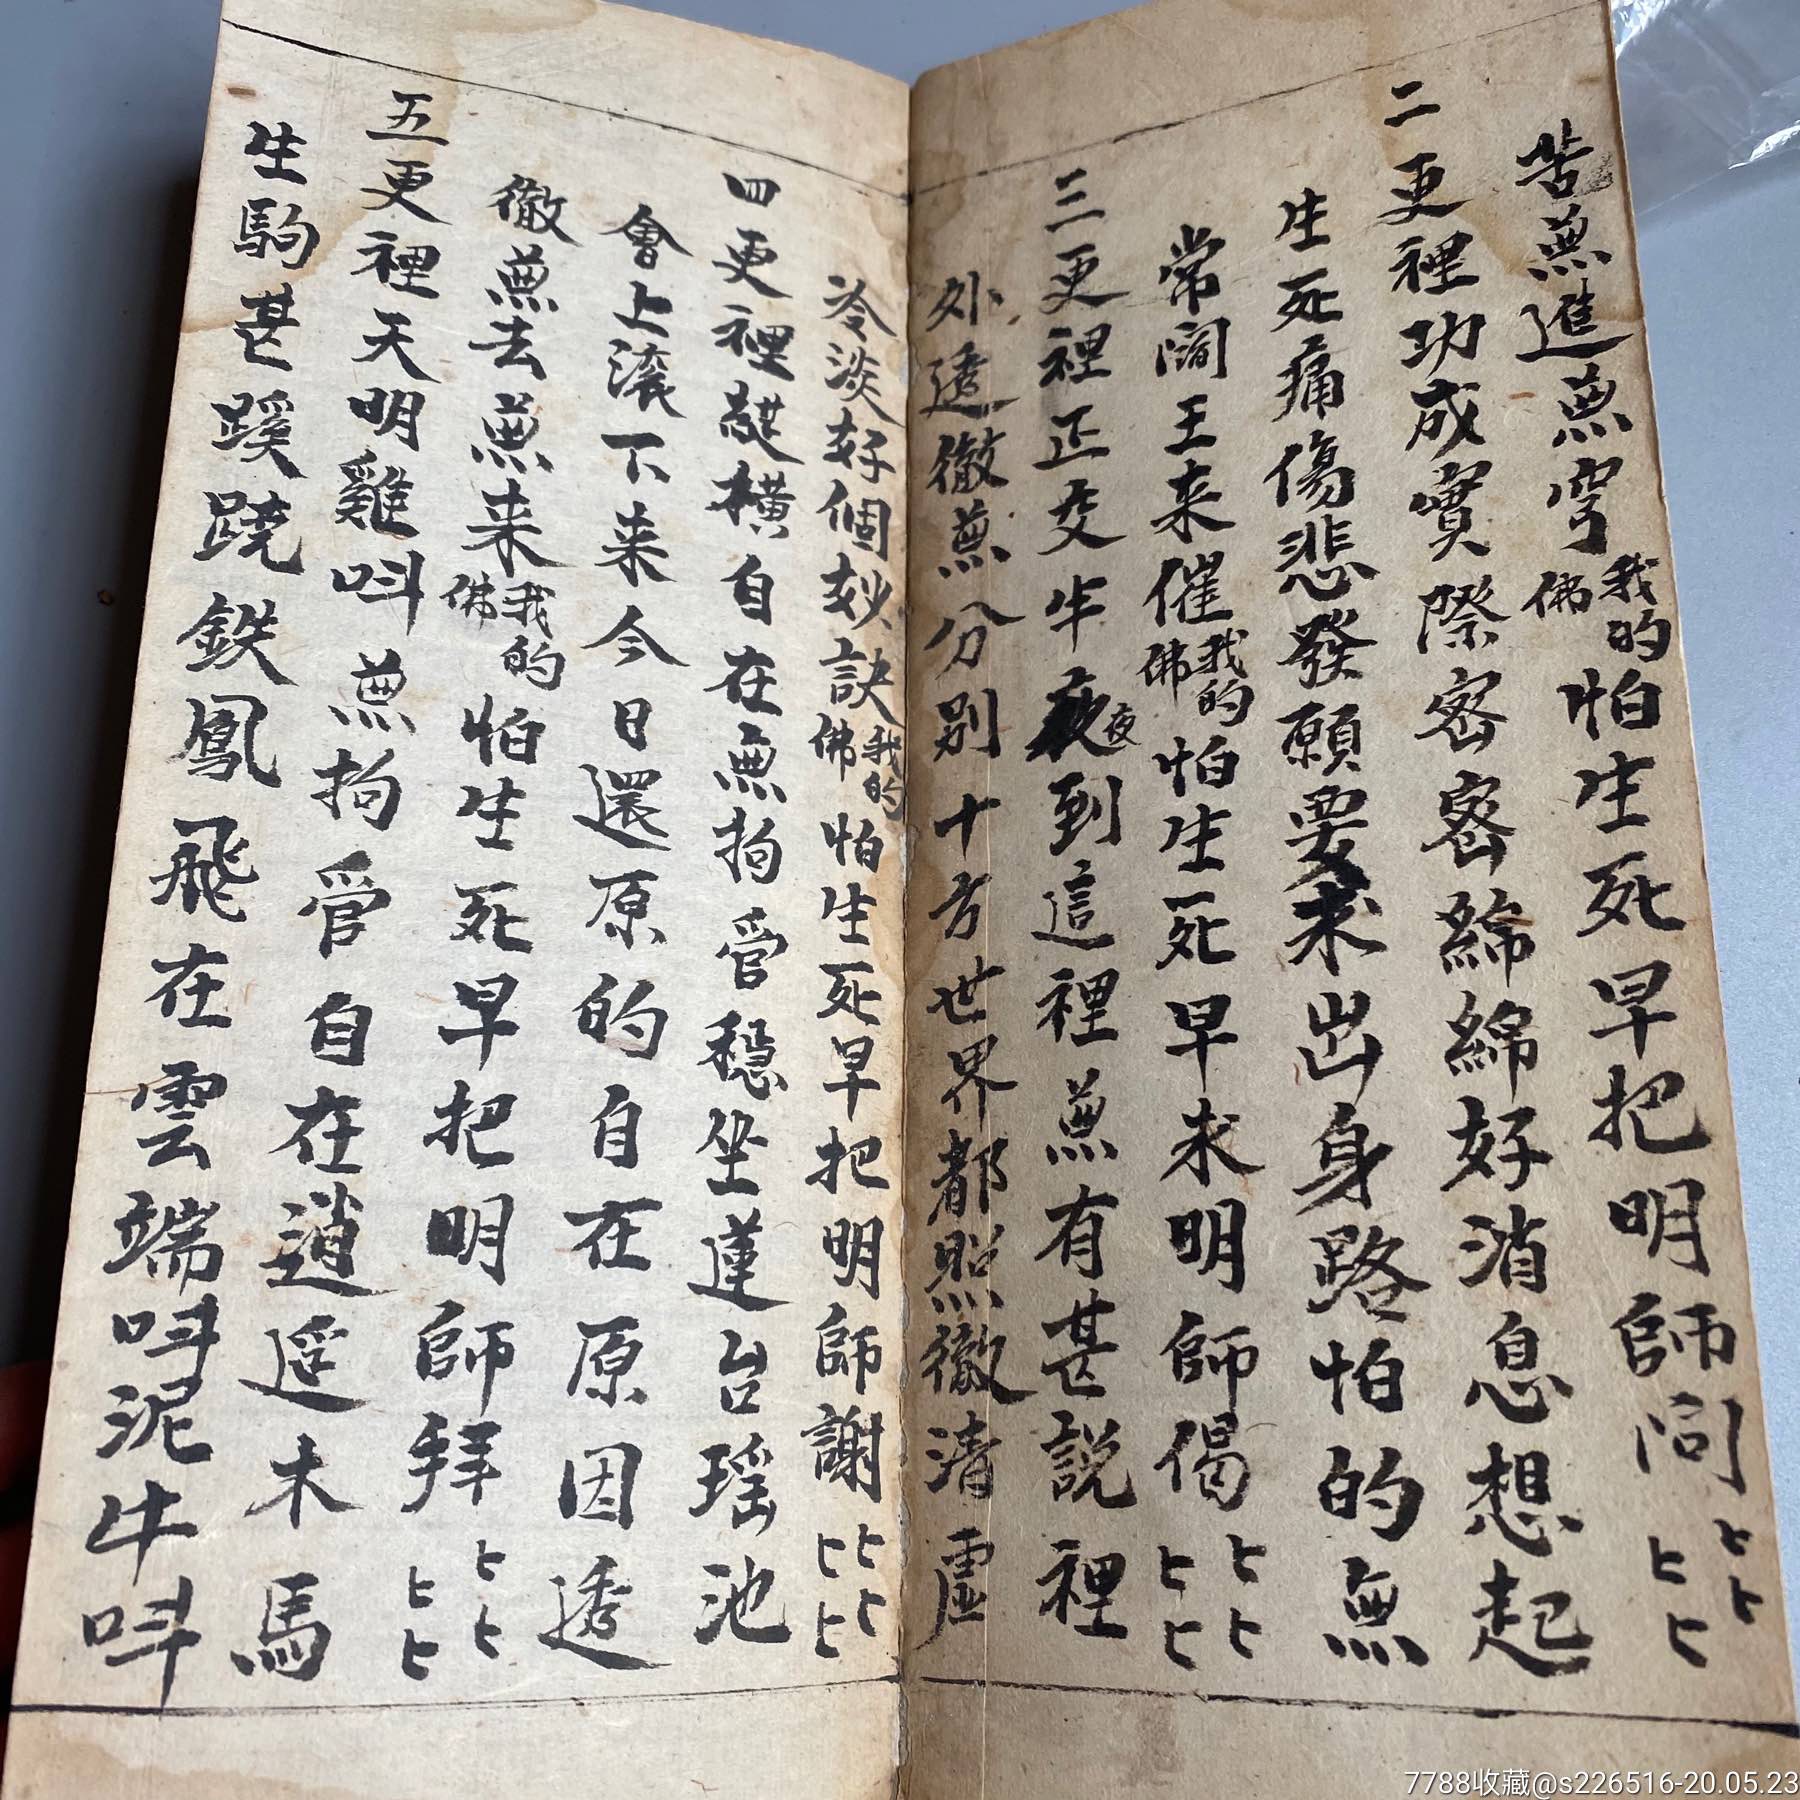 苦無進無穹我的佛怕生死早把明師问〻〻〻〻
二更裡功成實際密密綿綿好消息想起
生死痛傷悲發願要求出身路怕的無
常閻王来催我的佛怕生死早求明師偈〻〻〻〻
三更裡正交半夜到這裡無有甚説裡
外透徹無分别十方世界都照徹清虛
冷淡好個妙訣我的佛怕生死早把明師謝〻〻〻〻
四更裡横自在無拘管穩坐蓮台瑶池
會上滚下来今日還原的自在原因透
徹無去無来我的佛怕生死早把明師拜〻〻〻〻
五更裡天明雞呌無拘管自在逍遥木馬
生駒甚蹊蹺鉄鳳飛在雲端呌泥牛呌
7788收藏@s226516-20.05.23